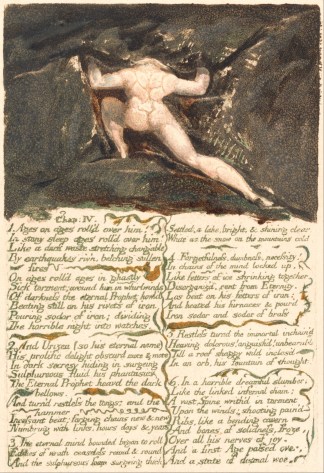 Chap: IV.
1. Ages on ages roll'd over him
In stony sleep ages roll'd over him
Like a dark waste stretching changeable
By earthquakes riv'n, belching sullen
fires
On ages roll'd ages in ghastly
Sick torment; around him in whirlwinds
Of darkness the eternal Prophet howl'd
Beating still on his rivets of iron
Pouring sodor of iron; dividing
The horrible night into watches.
2. And Urizen (so his eternal name)
His prolific delight obscurd more & more
In dark secresy hiding in surgeing
Sulphureous fluid his phantasies.
The Eternal Prophet heavd the dark
bellows,
And turnd restless the tongs; and the
hammer
Incessant beat; forging chains new & new
Numb'ring with links. hours, days & years
3. The eternal mind bounded began to roll
Eddies of wrath ceaseless round & round,
And the sulphureous foam surgeing thick
Settled, a lake, bright, & shining clear:
White as the snow on the mountains cold.
4. Forgetfulness, dumbness, necessity!
In chains of the mind locked up,
Like fetters of ice shrinking together
Disorganiz'd, rent from Eternity.
Los beat on his fetters of iron;
And heated his furnaces & pour'd
Iron sodor and sodor of brass
5. Restless turnd the immortal inchain'd
Heaving dolorous! anguish'd! unbearable
Till a roof shaggy wild inclos'd
In an orb, his fountain of thought.
6. In a horrible dreamful slumber;
Like the linked infernal chain;
A vast Spine writh'd in torment
Upon the winds; shooting pain'd
Ribs, like a bending cavern
And bones of solidness, froze
Over all his nerves of joy.
And a first Age passed over,
And a state of dismal woe.